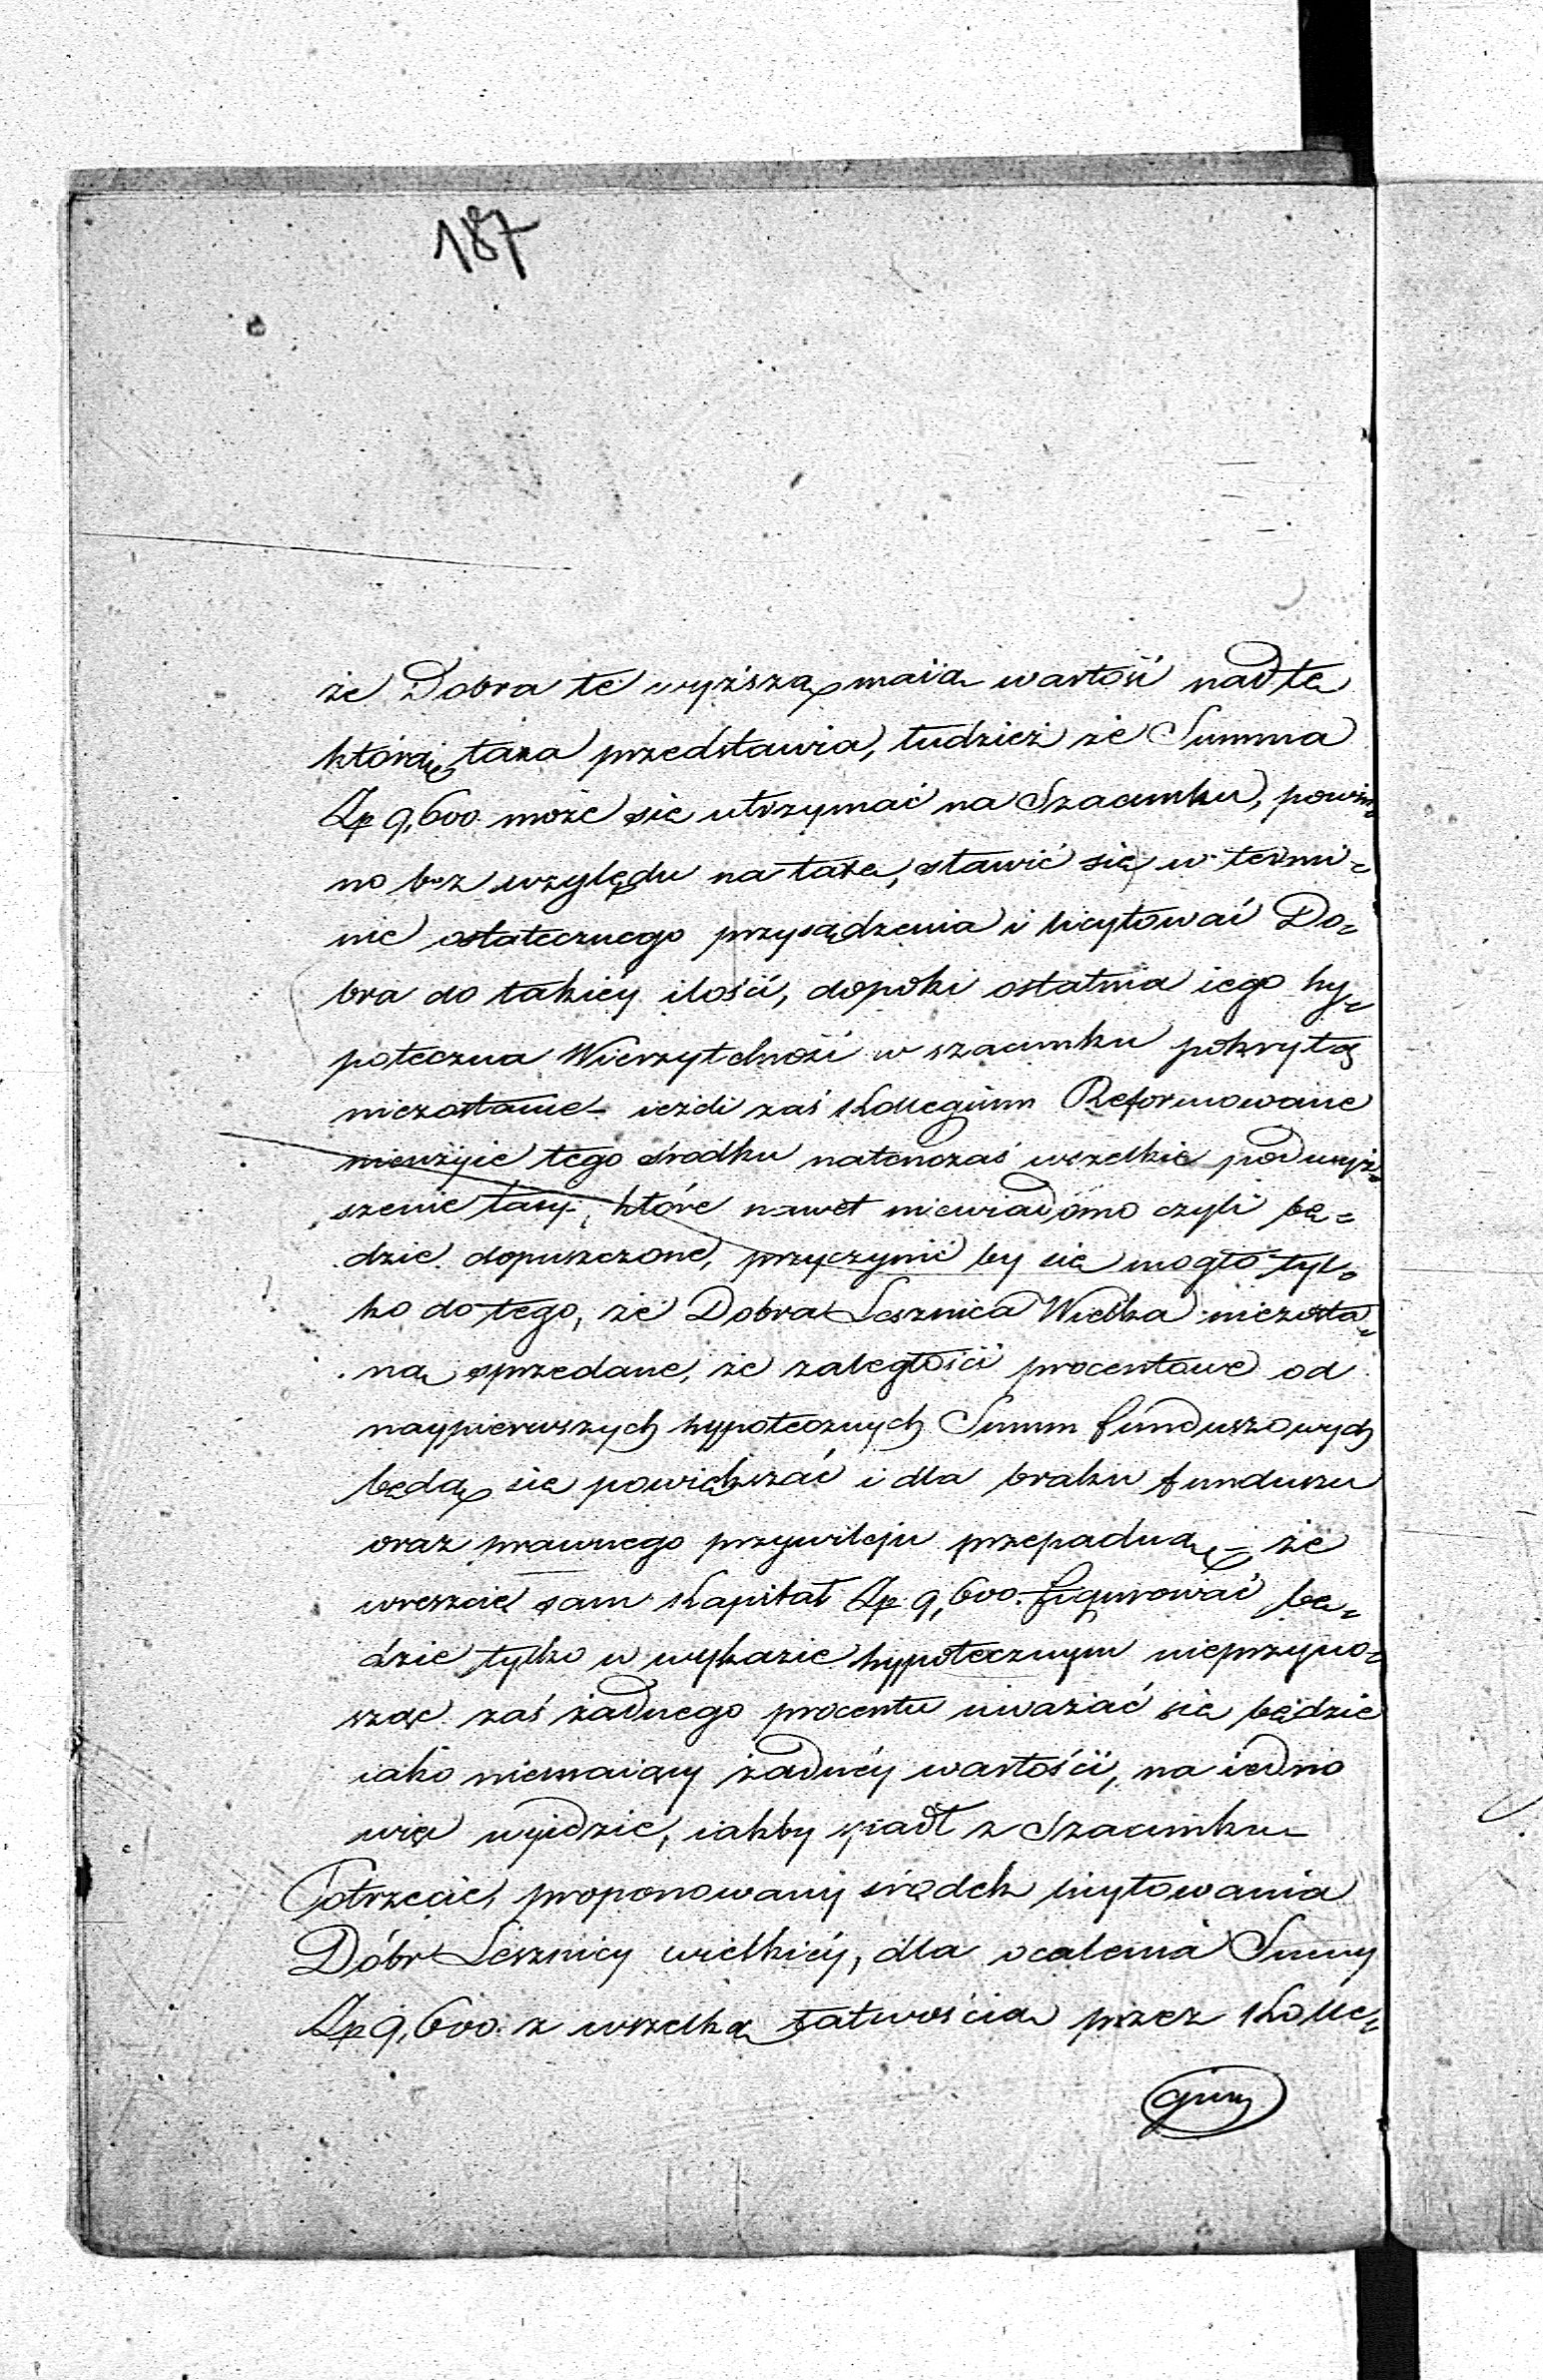 187
że Dobra te wyższą maią wartość nad tę
którą taxa przedstawia, tudzież że Summa
Zp 9,600. może się utrzymać na Szacunku, powin=
no bez względu na taxę, stawić się w termi=
nie ostatecznego przysądzenia i licytować Do=
bra do takiéy ilości, dopóki ostatnia iego hy=
poteczna Wierzytelność w szacunku pokrytą
niezostanie – ieżeli zaś Kollegium Reformowane
nieużyie tego środku natenczas wszelkie podwyż=
szenie taxy, które nawet niewiadomo czyli bę=
dzie dopuszczone, przyczynić by się mogło tyl=
ko do tego, że Dobra Lesznica Wielka niezosta=
ną sprzedane, że zaległości procentowe od
naypierwszych hypotecznych Summ funduszowych
będą się powiększać i dla braku funduszu
oraz prawnego przywileju przepadną – że
wreszcie sam Kapitał Zp. 9,600. figurować bę=
dzie tylko w wykazie hypotecznym nieprzyno=
sząc zaś żadnego procentu uważać się będzie
iako niemaiący żadnéy wartości, na iedno
więc wyidzie, iakby spadł z Szacunku –
Potrzecie, proponowany środek licytowania
Dóbr Lesznicy wielkiéy, dla ocalenia Summy
Zp 9,600. z wszelką łatwością przez Kolle=
gium